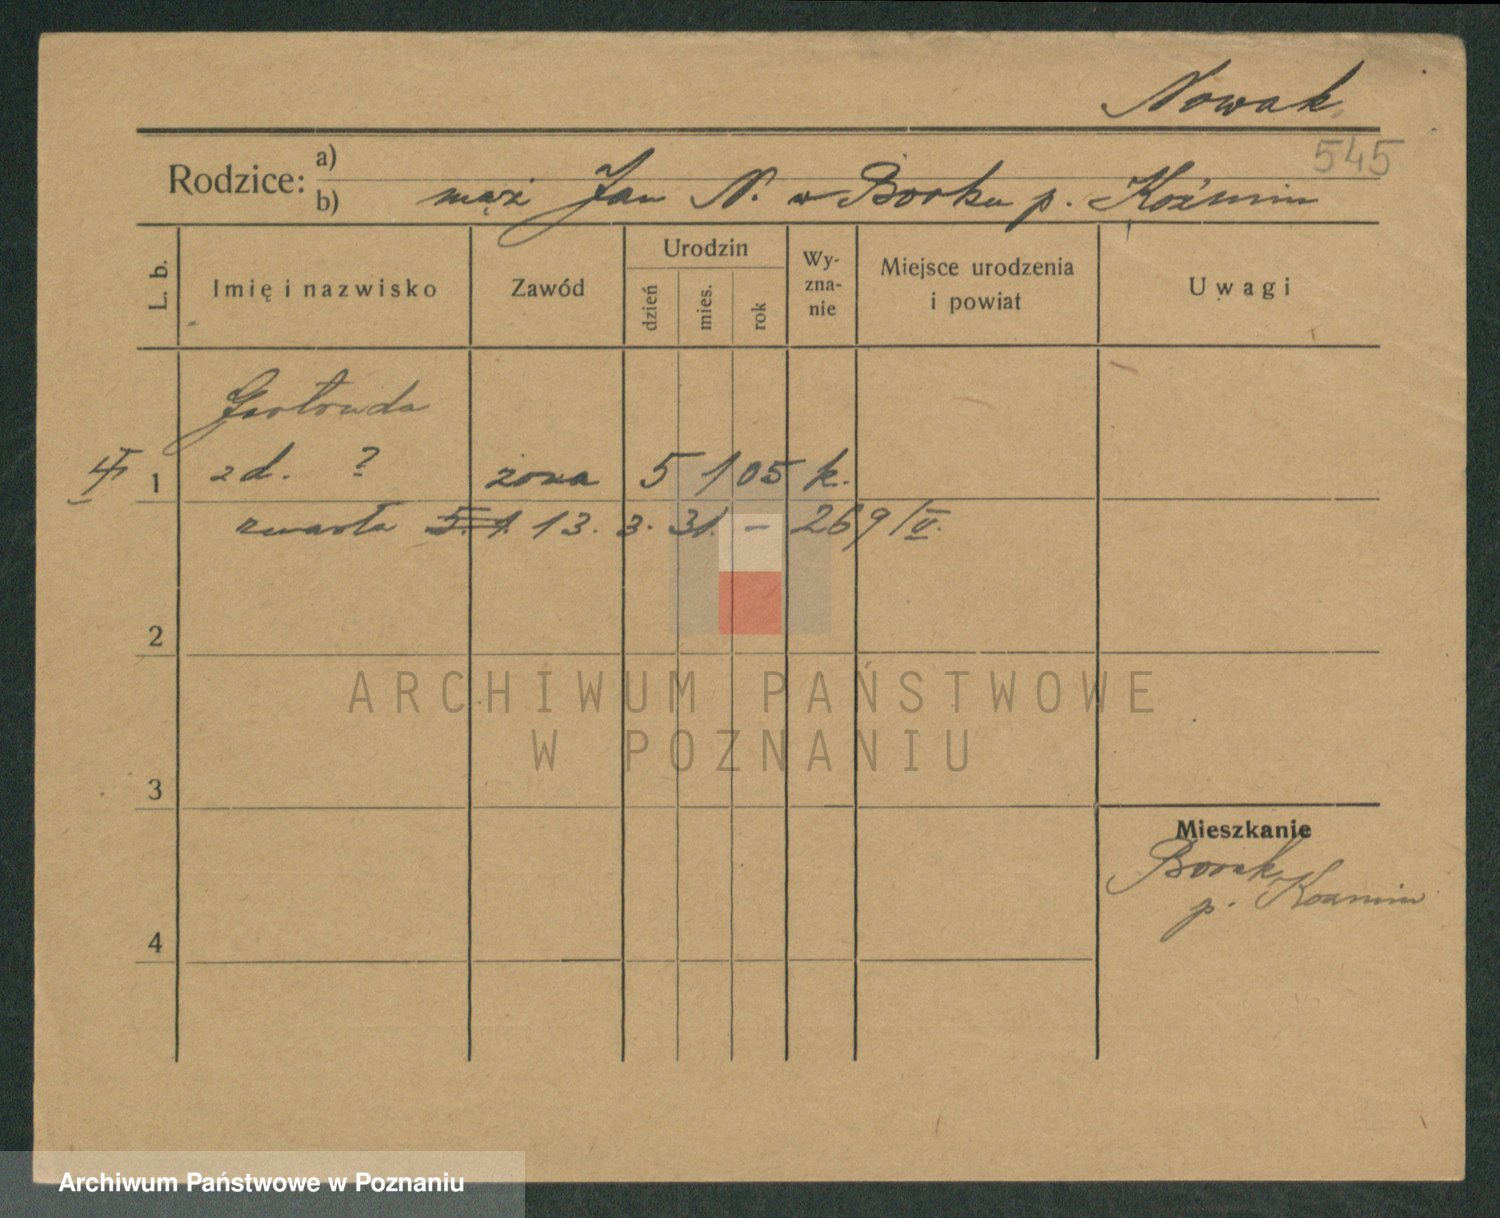 Nowak
545
Rodzice: a)
b) mąż Jan N. w Borku p. Koźmin
L. b.
Imię i nazwisko
Zawód
Urodzin
dzień
mies.
rok
Wy-
zna-
nie
Miejsce urodzenia
i powiat
Uwagi
Gertruda
1 zd. ? żona 5 1 05 k.
zmarła 5. 1. 13. 3. 31. – 269/II.
2
ARCHIWUM PAŃSTWOWE
W POZNANIU
3
Mieszkanie
Borek,
p. Kozmin
4
Archiwum Państwowe w Poznaniu